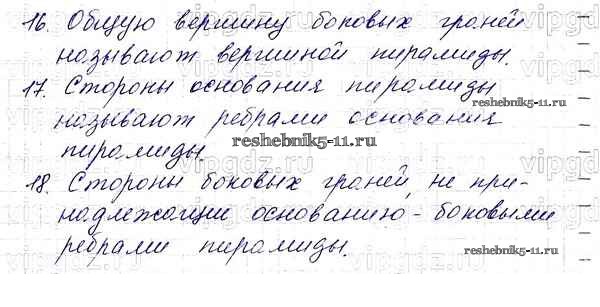 16. Общую вершину боковых граней
называют вершиной пирамиды.
17. Стороны основания пирамиды
reshebnik5-11.ru
называют ребрами основания
reshebnik5-11.ru
пирамиды.
18. Стороны боковых граней, не при-
надлежащие основанию - боковыми
ребрами пирамиды.
reshebnik5-11.ru